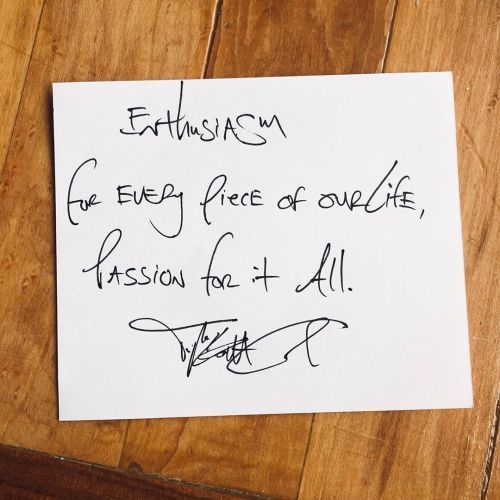 Enthusiasm
For every piece of our life,
Passion for it all.